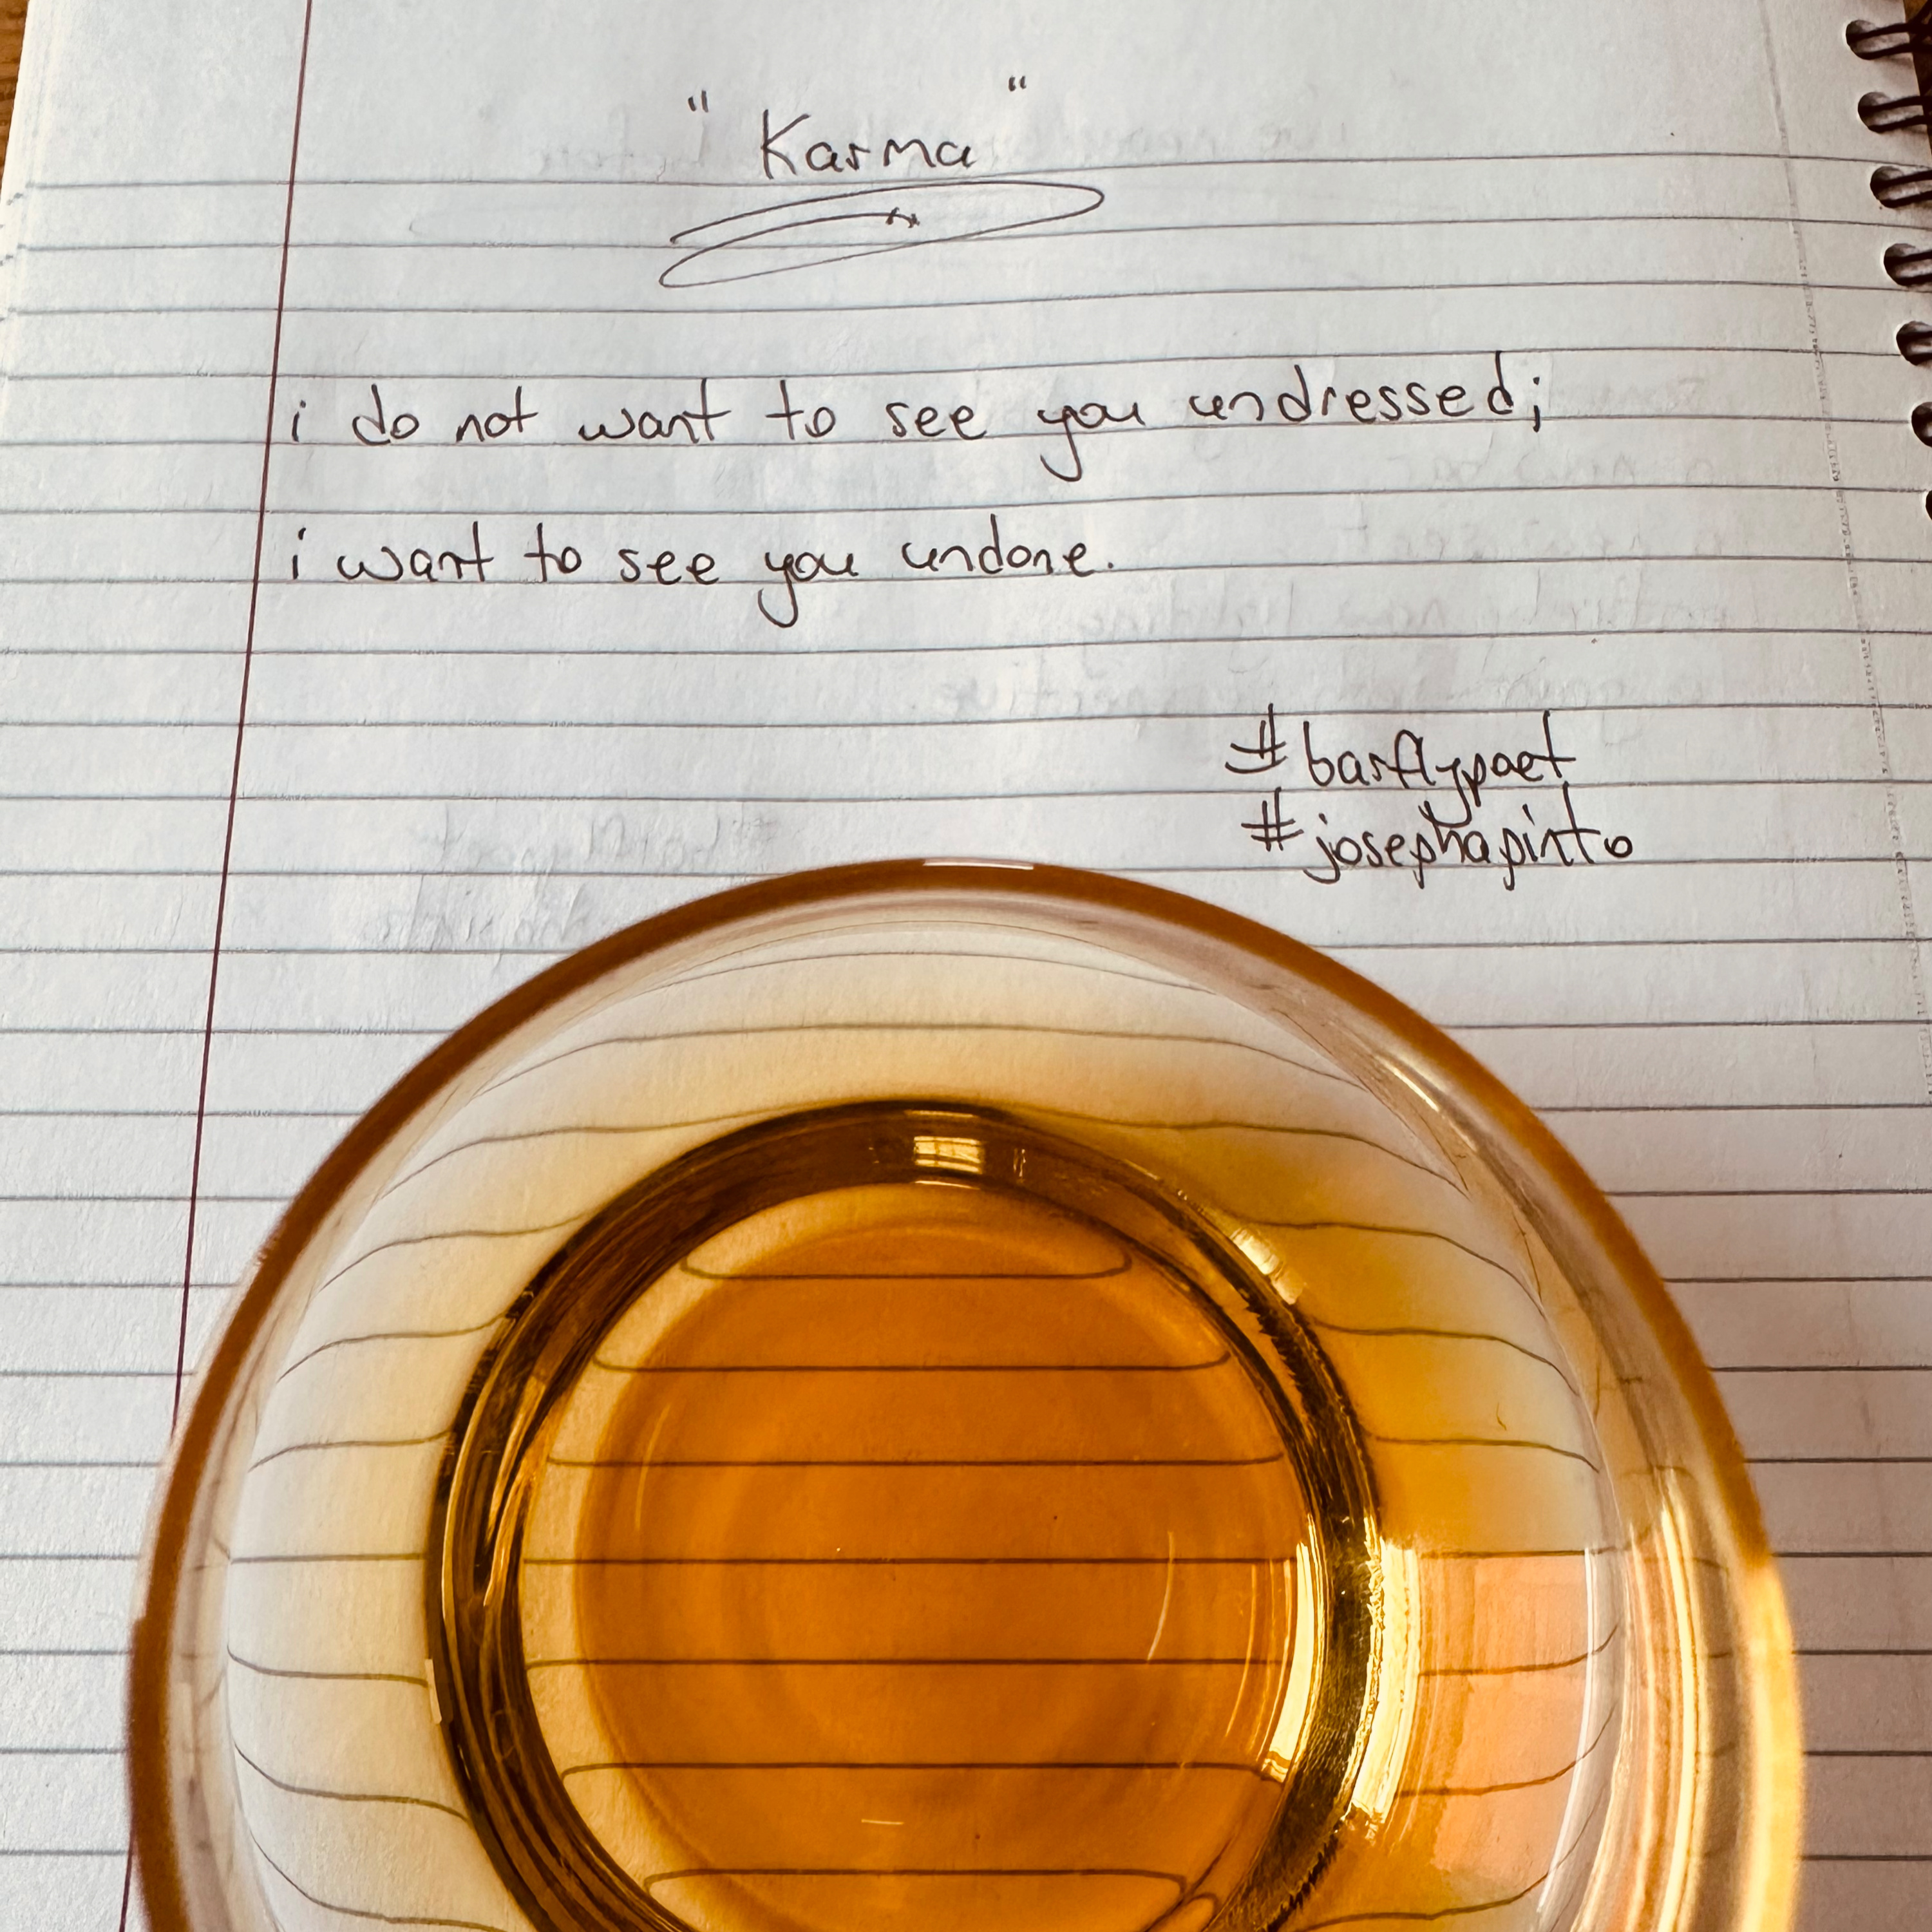 "Karma"
i do not want to see you undressed;
i want to see you undone.
#barflypoet
#josephapinto